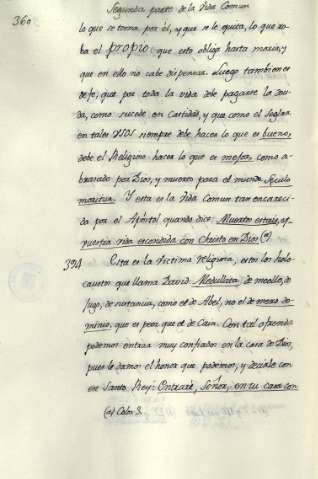 360
Segunda parte de la Vida Comun
lo que se toma por él, y que se le quita, lo que ro-
ba el propio: que esto obliga hasta morir, y
que en ello no cabe dispensa. Luego tambien es
de fe, que por toda la vida debe pagarse la deu-
da, como sucede en Castidad, y que como el Seglar
en tales usos siempre debe hacer lo que es bueno,
debe el Religioso hacer lo que es mejor, como a-
brasado por Dios, y muerto para el mundo
mortua. Y esta es la Vida Comun tan encareci-
da por el Apóstol quando dice: Muertos estais, y
vuestra vida escondida con Christo en Dios (a)
394 Esta es la Victima religiosa, estos los holo-
caustos que llama David Medullata de meollo, de
jugo, de sustancia, como el de Abel, no el de mero do-
minio, que es peor que el de Cain. Con tal ofrenda
podemos entrar muy confiados en la casa de Dios,
pues le damos el honor que podemos, y decirle con
ese Santo Rey: Entraré, Señor, en tu casa con
(a) Colos 3.